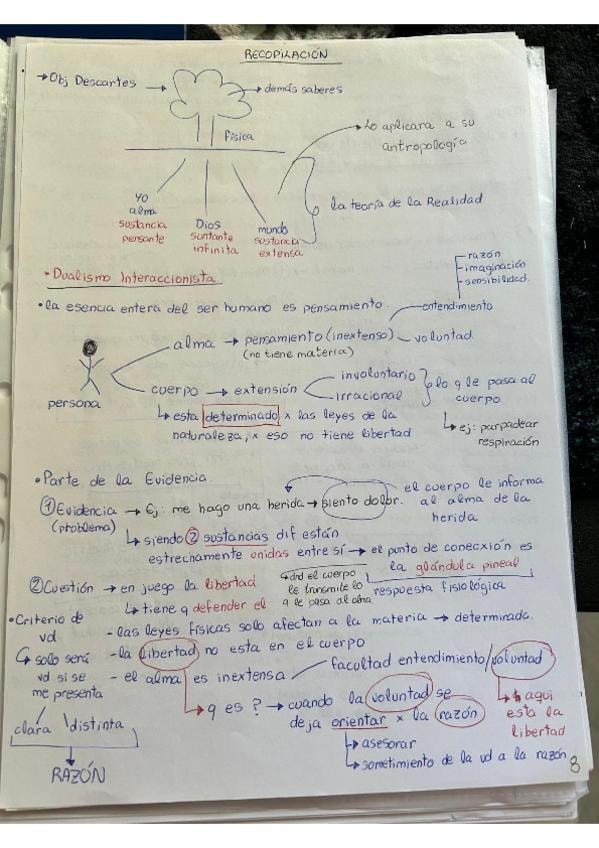 RECOPILACIÓN
→Obj Descartes → → demás saberes
física
→ Lo aplicara a su
antropología
yo
alma
sustancia
pensante
Dios
suntante
infinita
mundo
sustancia
extensa
la teoría de la Realidad
• Dualismo Interaccionista
- razón
- imaginación
- sensibilidad.
• la esencia entera del ser humano es pensamiento.
entendimiento
alma → pensamiento (inextenso) voluntad.
(no tiene materia)
persona
cuerpo → extensión
involuntario
irracional
lo q le pasa al
cuerpo
↳ ej: parpadear
respiración
↳ esta determinado x las leyes de la
naturaleza, x eso no tiene libertad
• Parte de la Evidencia
① Evidencia → Ej: me hago una herida → siento dolor.
(problema)
el cuerpo le informa
al alma de la
herida
↳ siendo ② sustancias dif están
estrechamente unidas entre sí → el punto de conecxión es
la glándula pineal
↳ dnd el cuerpo
le transmite lo
q le pasa al alma
respuesta fisiológica
② Cuestión → en juego la libertad
↳ tiene q defender el
• Criterio de
vd
↳ solo será
vd si se
me presenta
clara \distinta
RAZÓN
- las leyes físicas solo afectan a la materia → determinada.
- la libertad no esta en el cuerpo
- el alma es inextensa facultad entendimiento/voluntad
↳ aqui
esta la
libertad
↳ q es ? → cuando la voluntad se
deja orientar x la razón
↳ asesorar
↳ sometimiento de la vd a la razón.
8